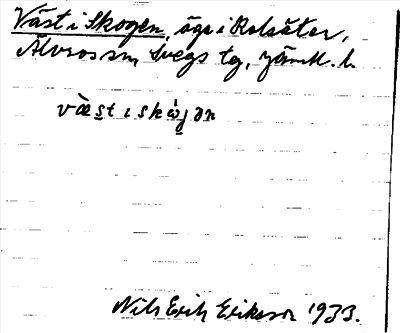 Väst i Skogen, äga i Rolsåter,
Älvros sn, Svegs tg, Jämtl. l.
vä̀st i skó̬gən
Nils Erik Eriksson 1933.